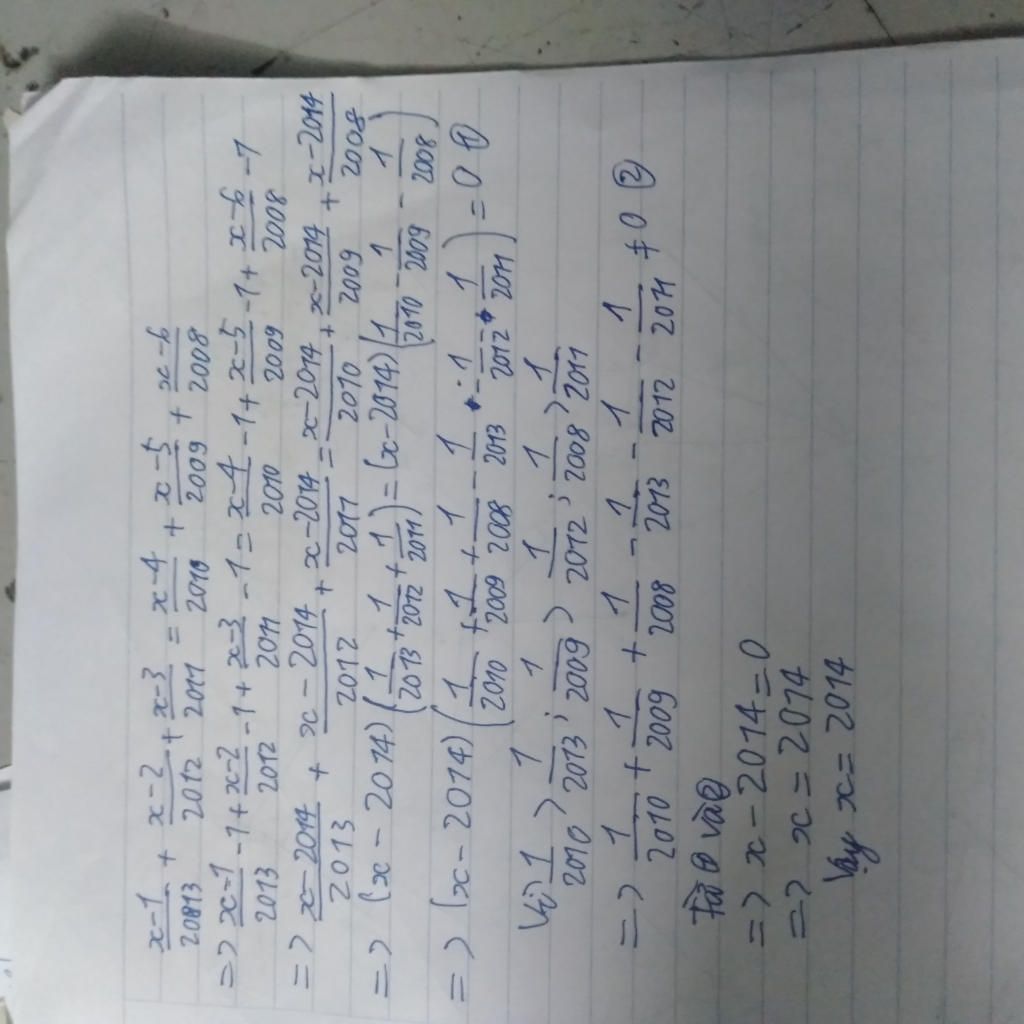 x-1/20813 + x-2/2012 + x-3/2011 = x-4/2010 + x-5/2009 + x-6/2008
=> x-1/2013 -1 + x-2/2012 -1 + x-3/2011 -1 = x-4/2010 -1 + x-5/2009 -1 + x-6/2008 -1
=> x-2014/2013 + x-2014/2012 + x-2014/2011 = x-2014/2010 + x-2014/2009 + x-2014/2008
=> (x-2014)(1/2013 + 1/2012 + 1/2011) = (x-2014)(1/2010 - 1/2009 - 1/2008)
=> (x-2014)(1/2010 + 1/2009 + 1/2008 - 1/2013 - 1/2012 - 1/2011) = 0 ①
Vì 1/2010 > 1/2013; 1/2009 > 1/2012; 1/2008 > 1/2011
=> 1/2010 + 1/2009 + 1/2008 - 1/2013 - 1/2012 - 1/2011 ≠ 0 ②
Từ ① và ②
=> x-2014=0
=> x=2014
Vậy x=2014